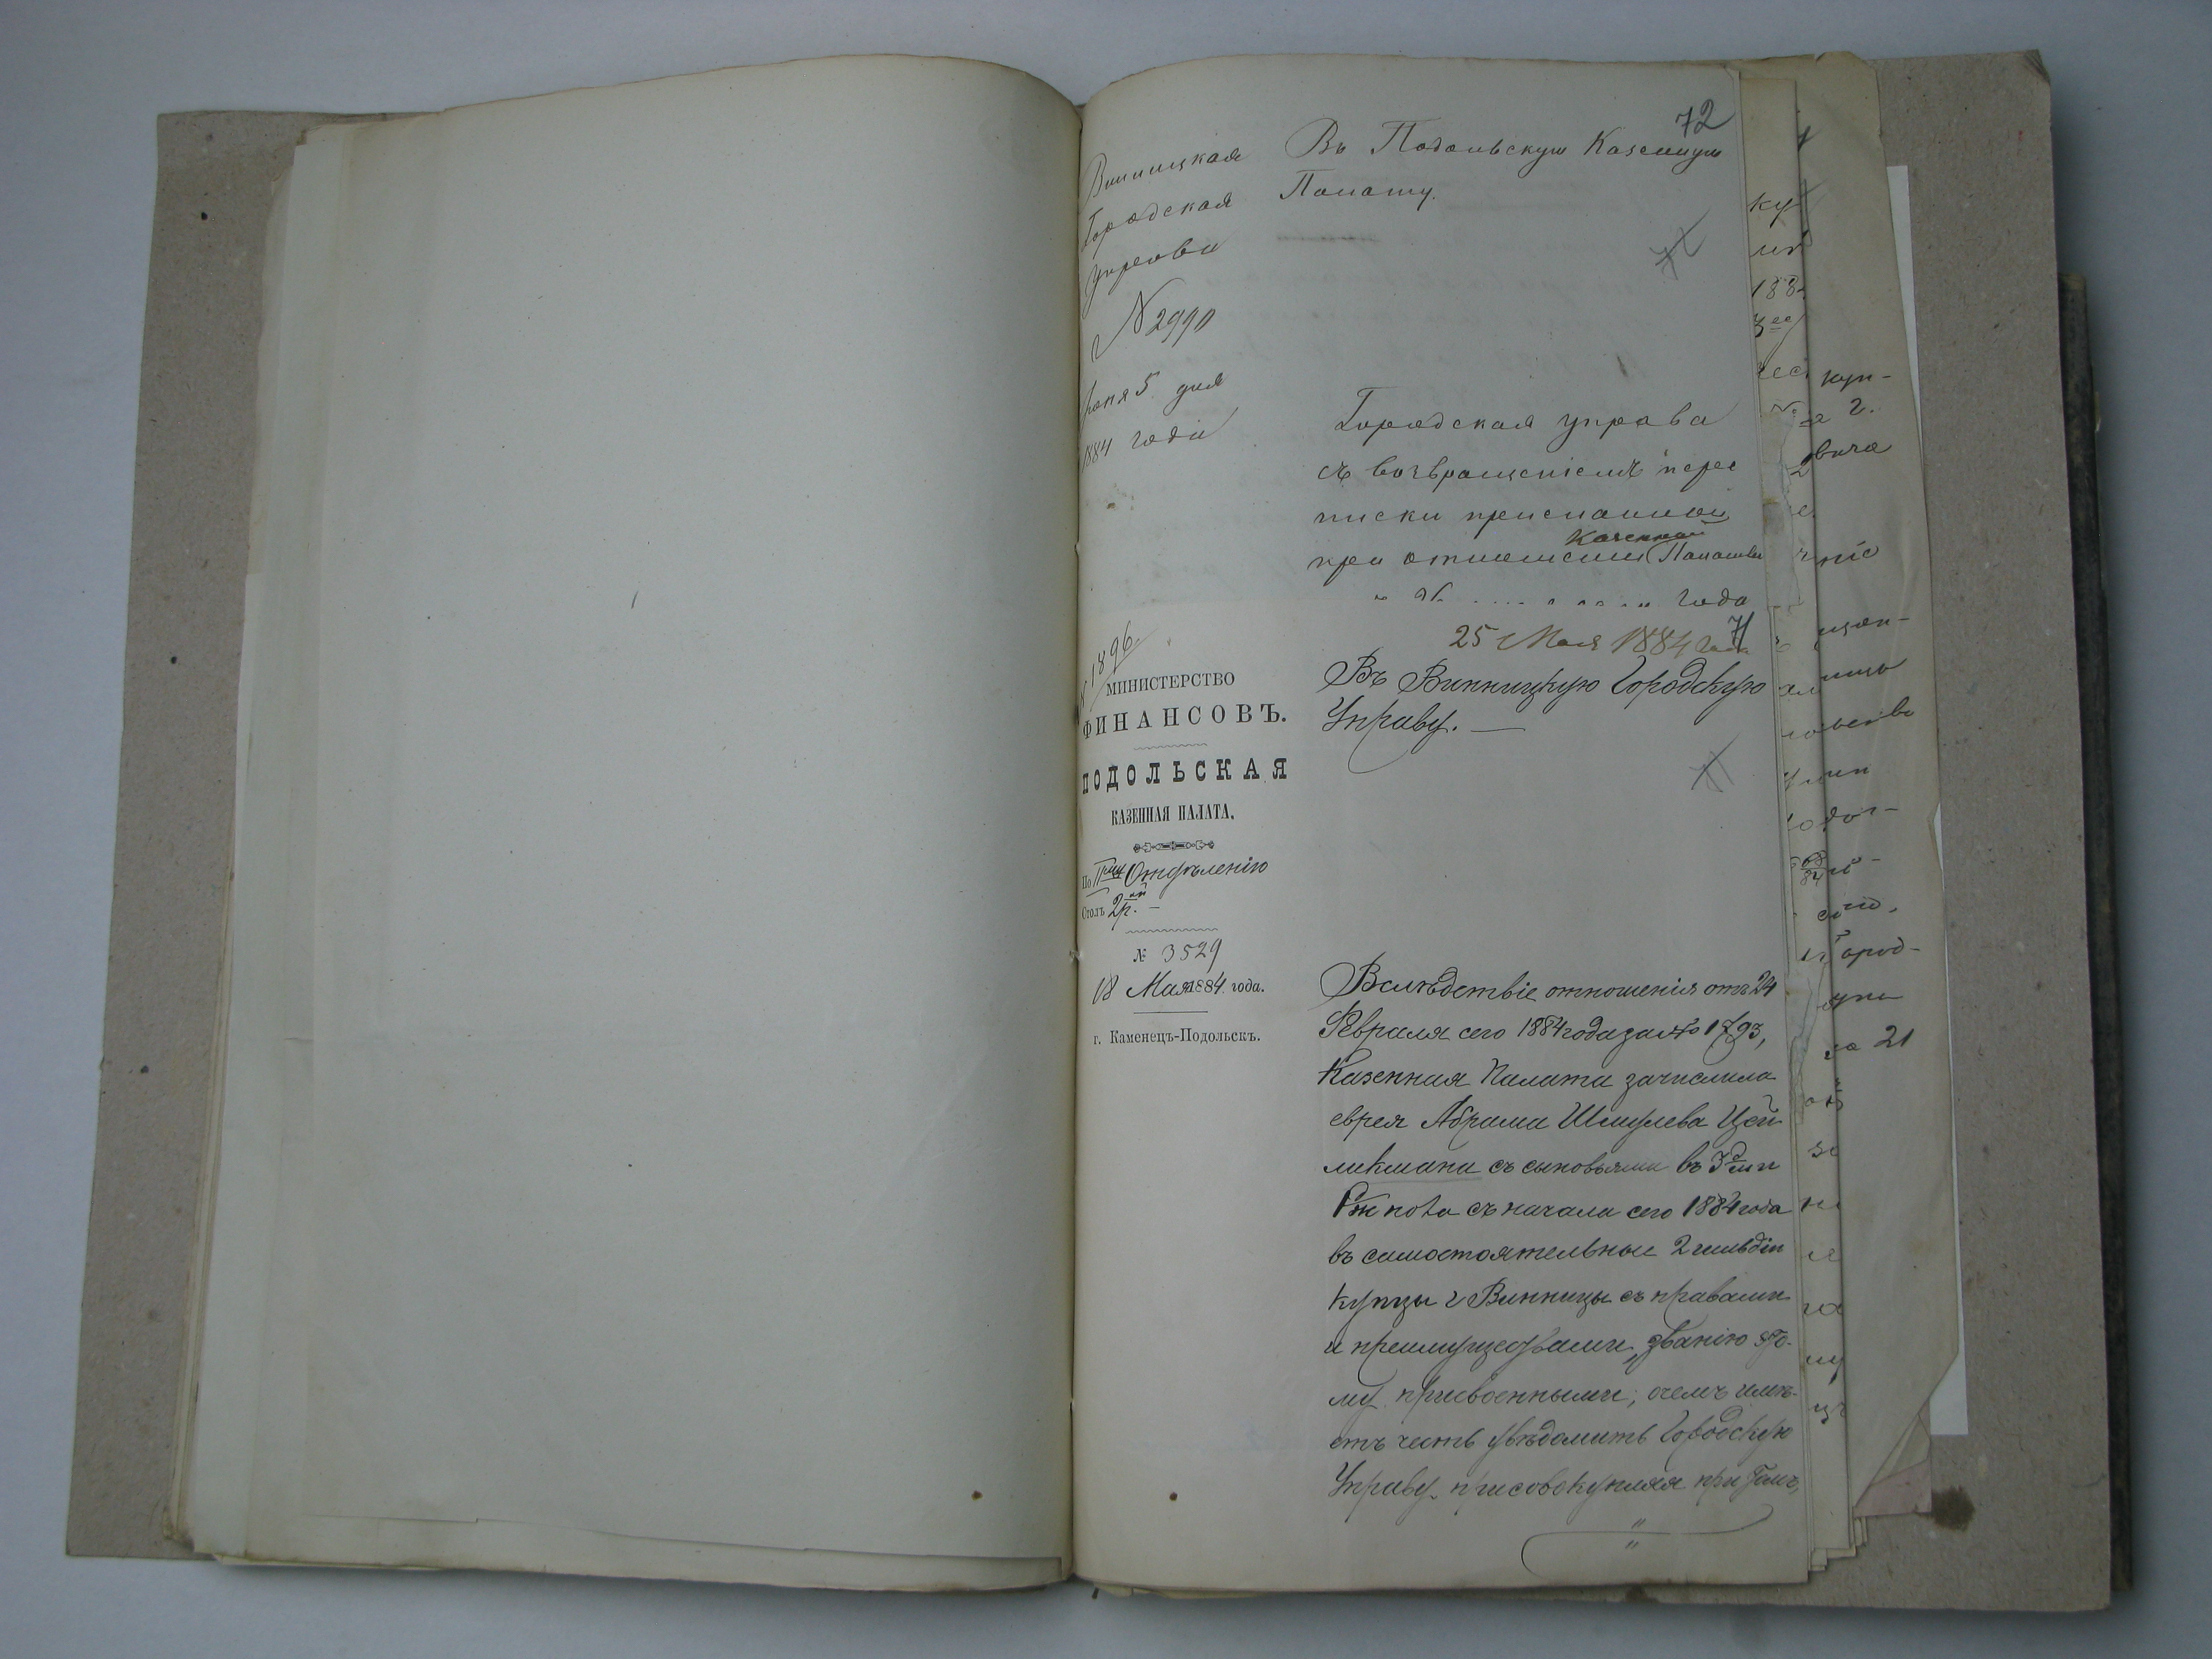 72
Винницкая
Городская
управа
N 2990
Іюня 5 дня
1884 года
Въ Подольскую Казенную
Палату.
Городская управа
съ возвращеніемъ пере
писки присланной
Казенной
при отношеніи Палаты
года
71
25 Мая 1884 года
N 1896
МИНИСТЕРСТВО
ФИНАНСОВЪ.
ПОДОЛЬСКАЯ
КАЗЕННАЯ ПАЛАТА.
По Отдѣленію
Столъ 2й.
№ 3529
18 Мая 1884 года.
г. Каменецъ-Подольскъ.
Въ Винницкую Городскую
Управу. —
Вслѣдствіе отношенія отъ 24
Февраля сего 1884 года за № 1793,
Казенная Палата зачислила
еврея Абрама Шмулева Цей
ликмана съ сыновьями въ
съ начала сего 1884 года
въ самостоятельные 2 гильдіи
купцы г Винницы съ правами
и преимуществами, званію это-
му присвоенными, о чемъ имѣ-
етъ честь увѣдомить Городскую
Управу, присовокупляя при томъ,
куп-
г.
вича
ніе
город-
21